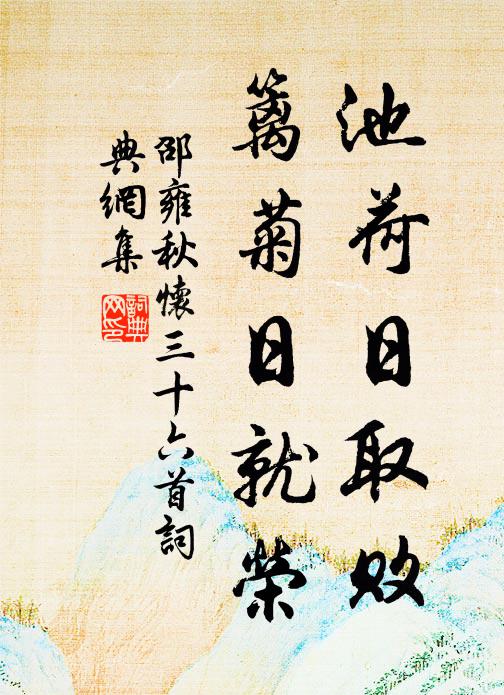 池荷日取败
篱菊日就荣
邵雍秋懷三十六首詞
典網集
詞典网印